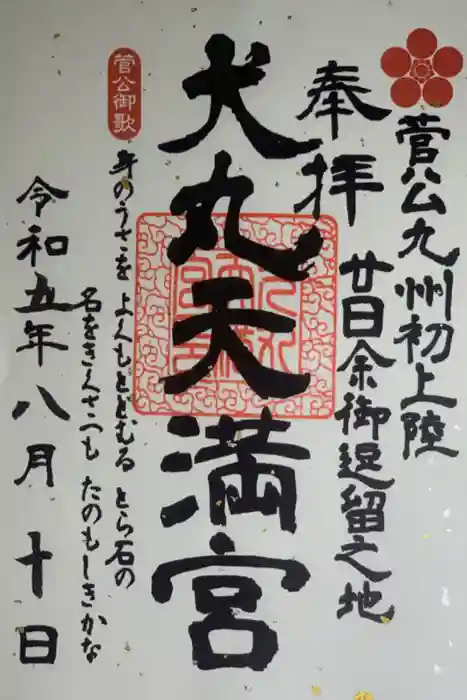 菅公九州初上陸
奉拝
廿日余御逗留之地
犬丸天満宮
菅公御歌
身のうさを よくもとどむる とら石の
名をきくさへも たのもしきかな
令和五年八月十日